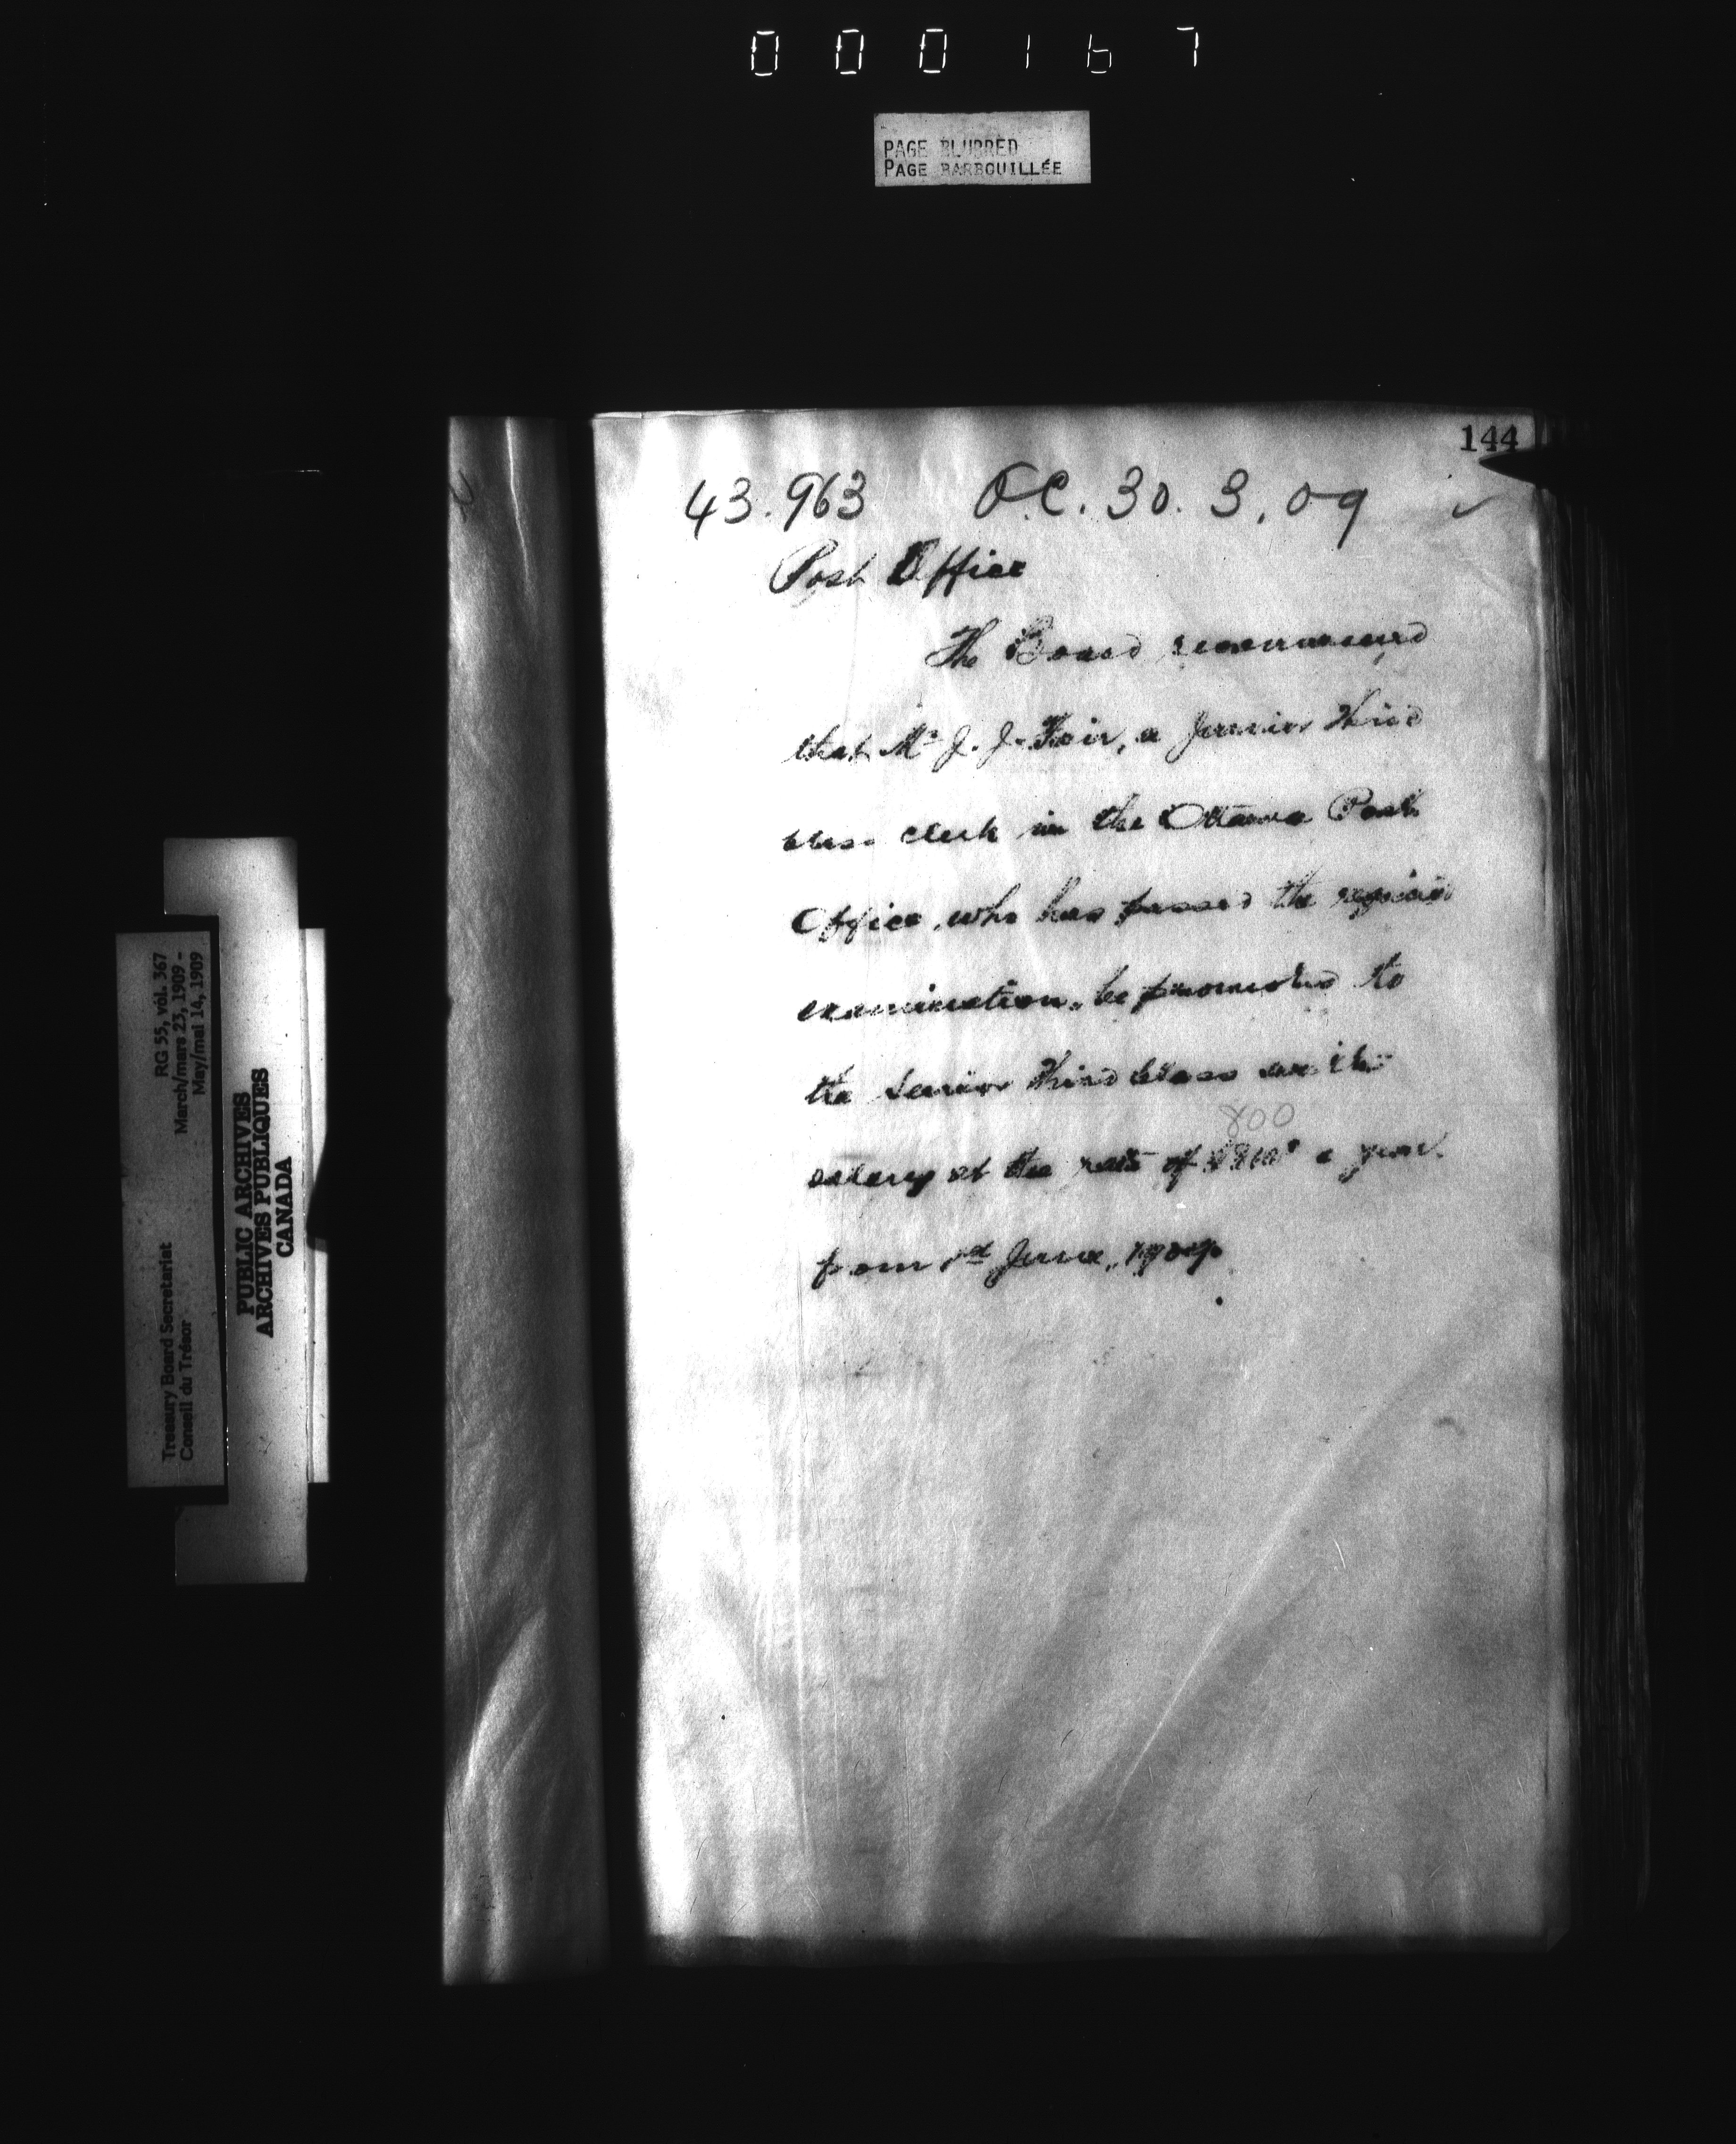 000167
PAGE BLURRED
PAGE BARBOUILLÉE
144
43.963 O.C. 30. 3. 09 ✓
Post Office
The Board recommend
that Mr J. J. a Junior Third
class clerk in the Ottawa Post
Office, who has passed the
examination, be promoted to
the Senior Third class with
800
salary at the rate of a year
from 1st June,
RG 55, vol. 367
March/mars 23, 1909 -
May/mai 14, 1909
Treasury Board Secretariat
Conseil du Trésor
PUBLIC ARCHIVES
ARCHIVES PUBLIQUES
CANADA